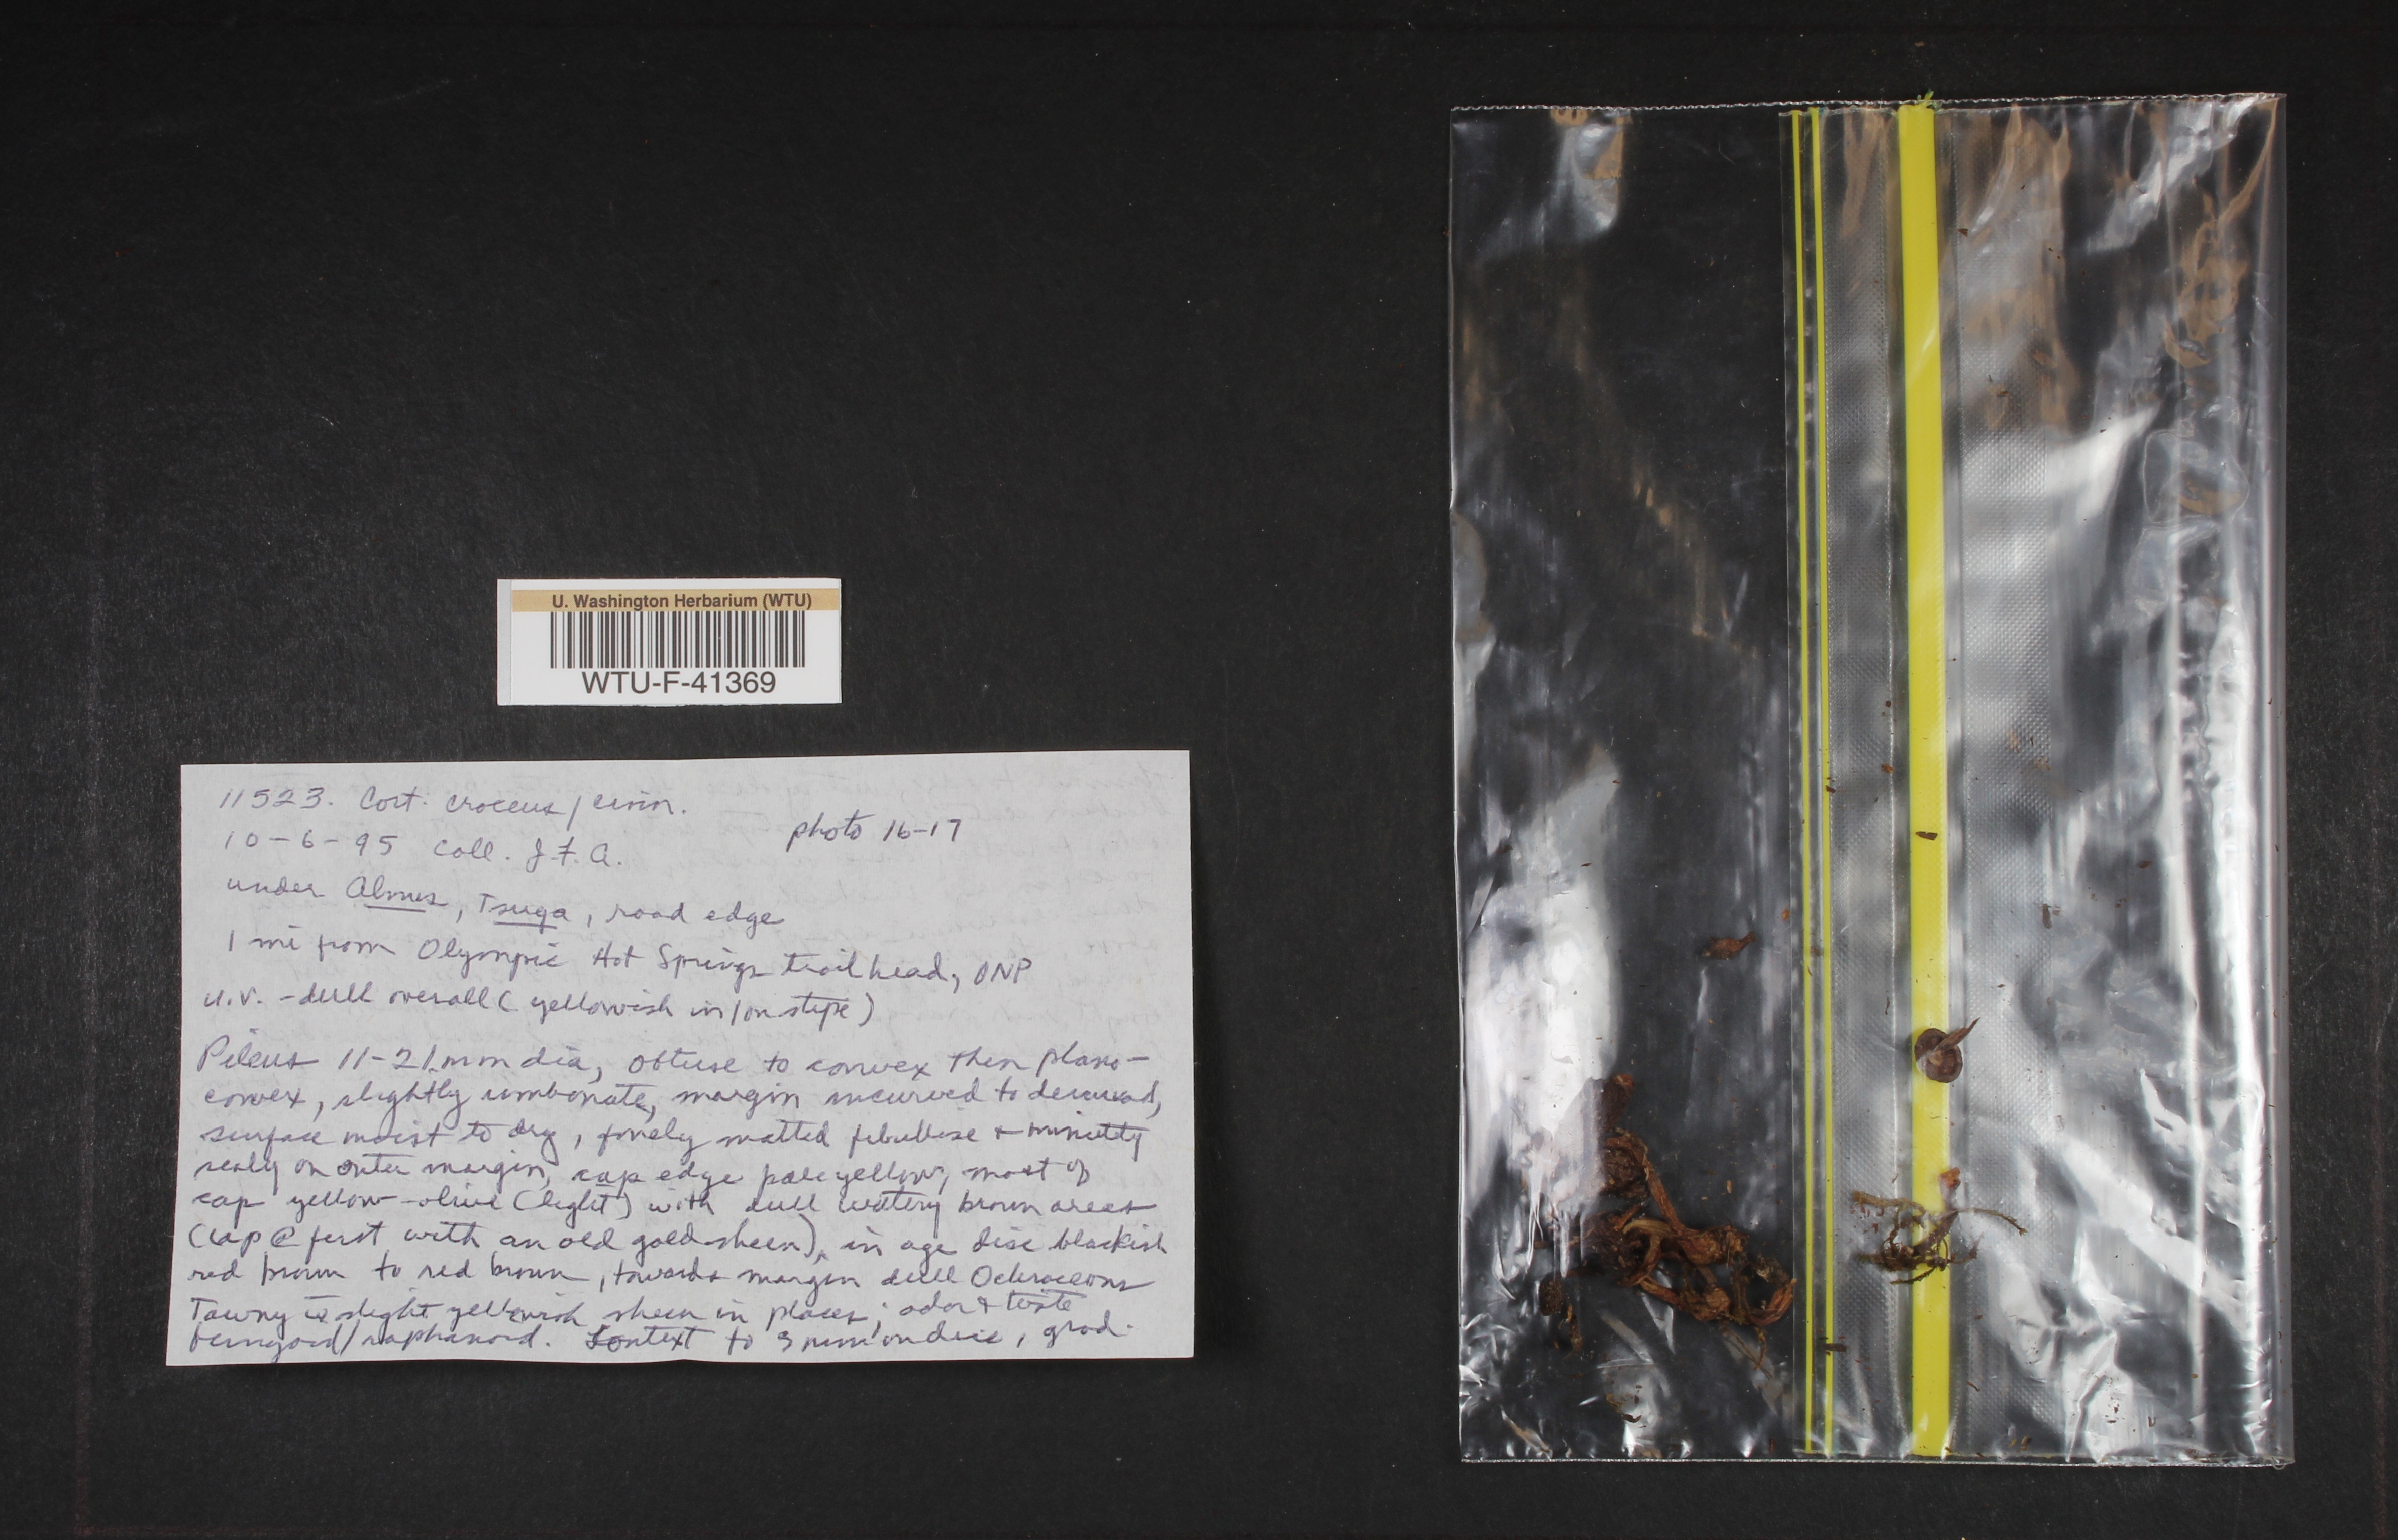 U. Washington Herbarium (WTU)
WTU-F-41369
11523. Cort. croceus / cinn.
photo 16-17
10-6-95 Coll. J.F.A.
under Alnus, Tsuga, road edge
1 mi from Olympic Hot Springs trailhead, ONP
u.v. - dull overall (yellowish in/on stipe)
Pileus 11-21 mm dia, obtuse to convex then plano-
convex, slightly umbonate, margin incurved to decurved,
surface moist to dry, finely matted fibrillose + minutely
scaly on outer margin, cap edge pale yellow, most of
cap yellow-olive (light) with dull watery brown areas
(cap @ first with an old gold sheen), in age disc blackish
red brown to red brown, towards margin dull Ochraceous
Tawny c̄ slight yellowish sheen in places; odor & taste
fungoid/raphanoid. Context to 3 mm on disc, grad.